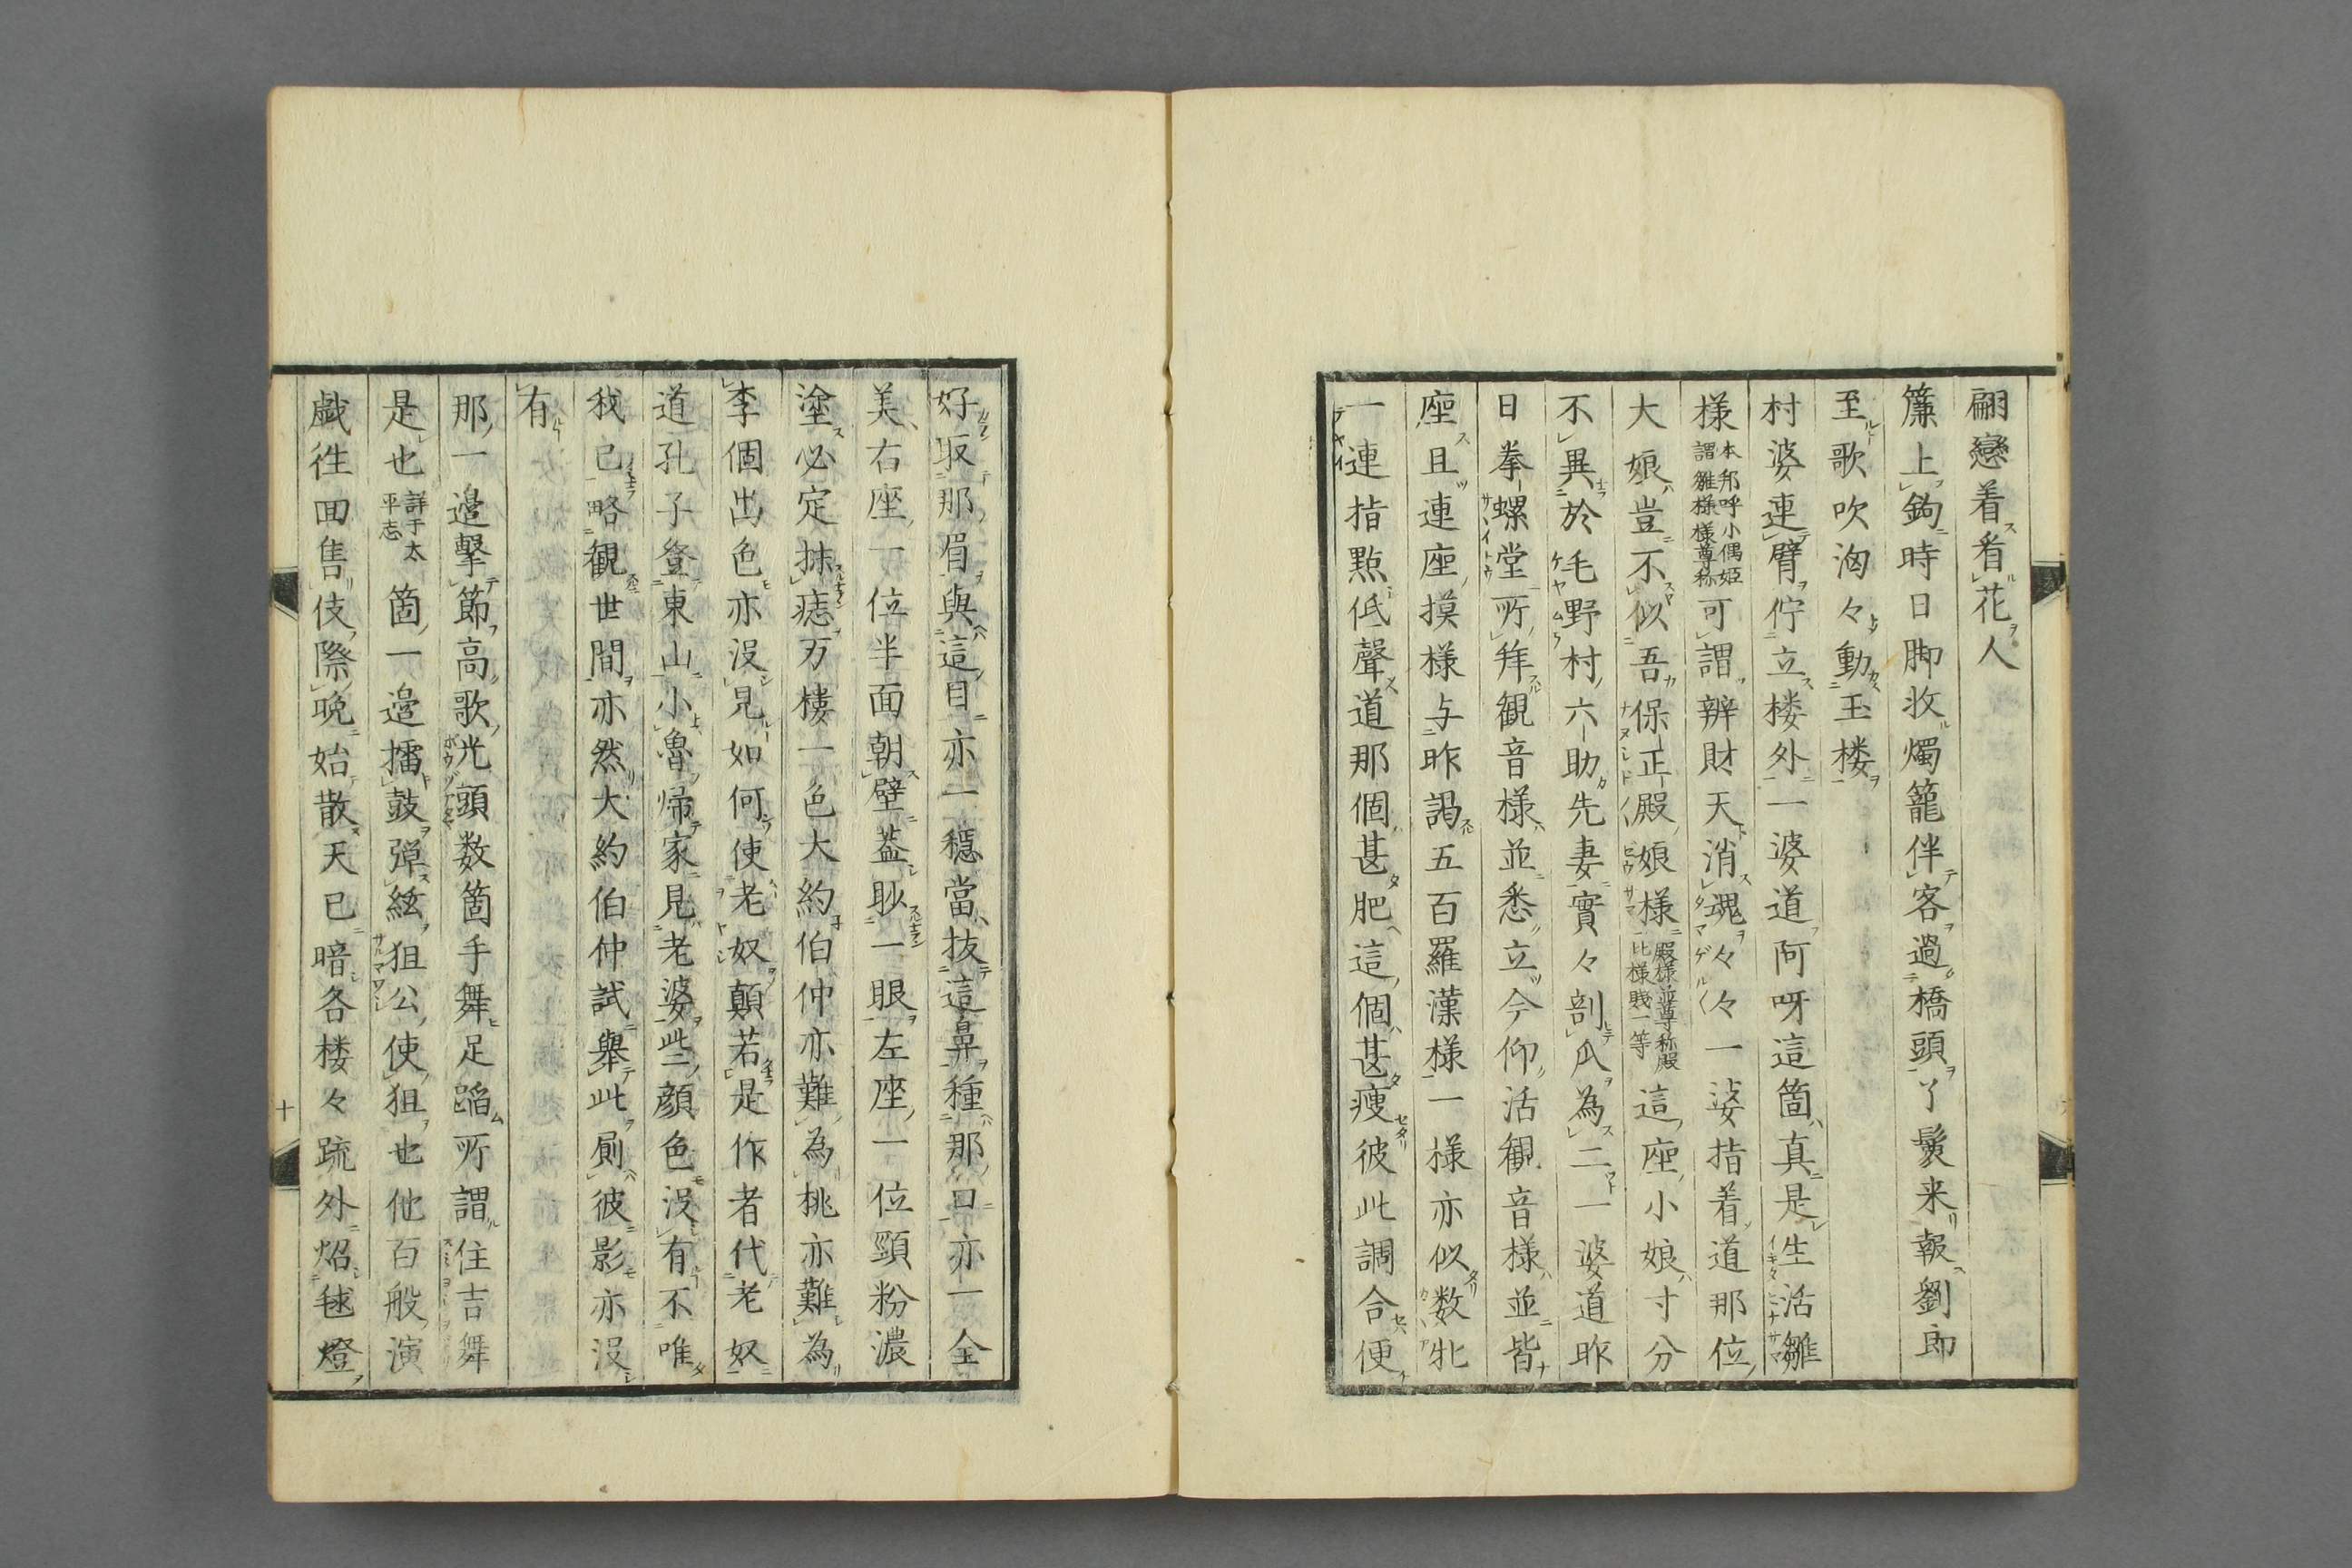 翩戀着看花人
簾上鉤時日脚收燭籠伴客過橋頭丫鬟来報劉郎
至歌吹洶々動玉楼
村婆連臂佇立楼外一婆道阿呀這箇真是生活雛
様本邦呼小偶姫謂雛様様尊称可謂辨財天消魂々々一婆指着道那位
大娘豈不似吾保正殿娘様殿様並尊称殿比様賤一等這座小娘寸分
不異於毛野村六助先妻實々剖瓜為二一婆道昨
日拳螺堂所拜観音様並悉立今仰活観音様並皆
座且連座摸様与昨謁五百羅漢様一様亦似数牝
一連指點低聲道那個甚肥這個甚痩彼此調合便
好取那眉與這目亦一穏當抜這鼻種那口亦一全
美右座一位半面朝壁蓋眇一眼左座一位頸粉濃
塗必定抹痣万楼一色大約伯仲亦難為桃亦難為
李個出色亦没見如何使老奴顛若是作者代老奴
道孔子登東山小魯帰家見老婆些顔色没有不唯
我已略観世間亦然大約伯仲試擧此厠彼影亦没
有
那一邉撃節高歌光頭数箇手舞足蹈所謂住吉舞
是也詳于太平志箇一邉擂鼓弾絃狙公使狙也他百般演
戯徃回售伎際晩始散天已暗各楼々疏外炤毬燈
十